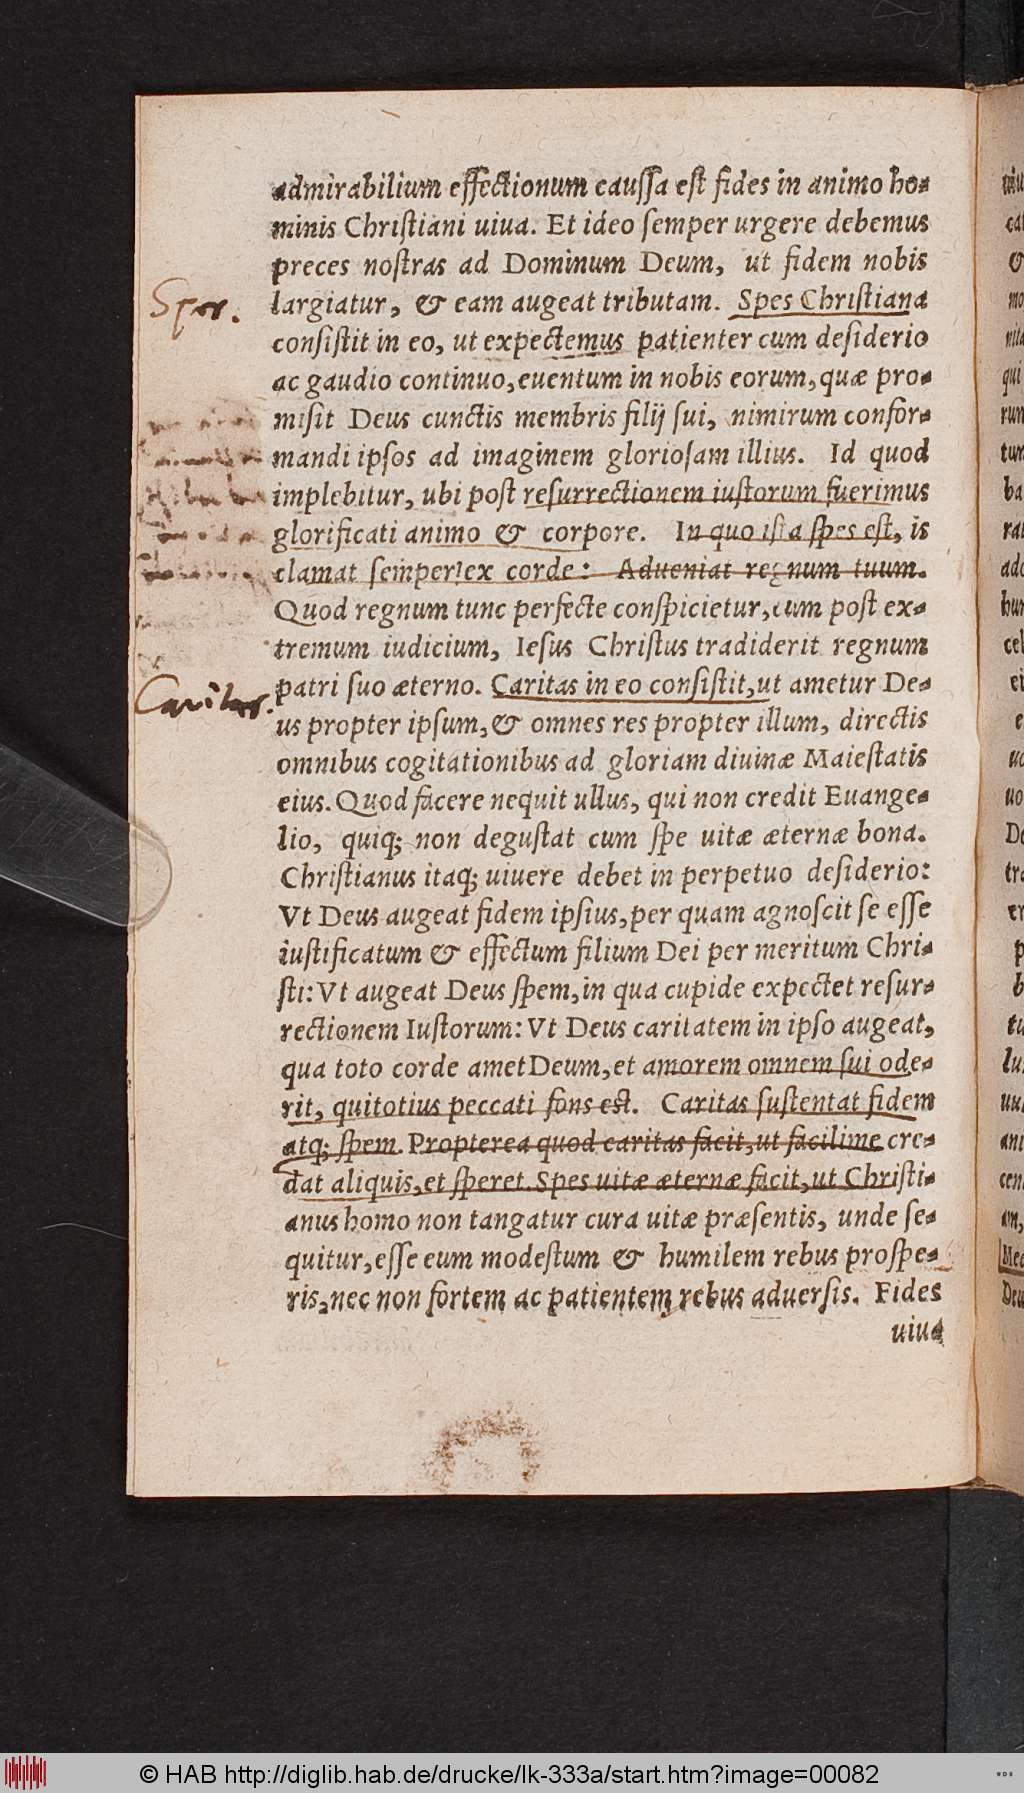 admirabilium effectionum caussa est fides in animo ho-
minis Christiani uiua. Et ideo semper urgere debemus
preces nostras ad Dominum Deum, ut fidem nobis
largiatur, & eam augeat tributam. Spes Christiana
Spes.
consistit in eo, ut expectemus patienter cum desiderio
ac gaudio continuo, euentum in nobis eorum, quæ pro-
misit Deus cunctis membris filij sui, nimirum confor-
mandi ipsos ad imaginem gloriosam illius. Id quod
implebitur, ubi post resurrectionem iustorum fuerimus
glorificati animo & corpore. In quo ista spes est, is
clamat semper ex corde: Adueniat regnum tuum.
Quod regnum tunc perfecte conspicietur, cum post ex-
tremum iudicium, Iesus Christus tradiderit regnum
patri suo æterno. Caritas in eo consistit, ut ametur De-
Caritas.
us propter ipsum, & omnes res propter illum, directis
omnibus cogitationibus ad gloriam diuinæ Maiestatis
eius. Quod facere nequit ullus, qui non credit Euange-
lio, quiq; non degustat cum spe uitæ æternæ bona.
Christianus itaq; uiuere debet in perpetuo desiderio:
Vt Deus augeat fidem ipsius, per quam agnoscit se esse
iustificatum & effectum filium Dei per meritum Chri-
sti: Vt augeat Deus spem, in qua cupide expectet resur-
rectionem Iustorum: Vt Deus caritatem in ipso augeat,
qua toto corde amet Deum, et amorem omnem sui ode-
rit, qui totius peccati fons est. Caritas sustentat fidem
atq; spem. Propterea quod caritas facit, ut facilime cre-
dat aliquis, et speret. Spes uitæ æternæ facit, ut Christi-
anus homo non tangatur cura uitæ præsentis, unde se-
quitur, esse eum modestum & humilem rebus prospe-
ris, nec non fortem ac patientem rebus aduersis. Fides
uiua
© HAB http://diglib.hab.de/drucke/lk-333a/start.htm?image=00082